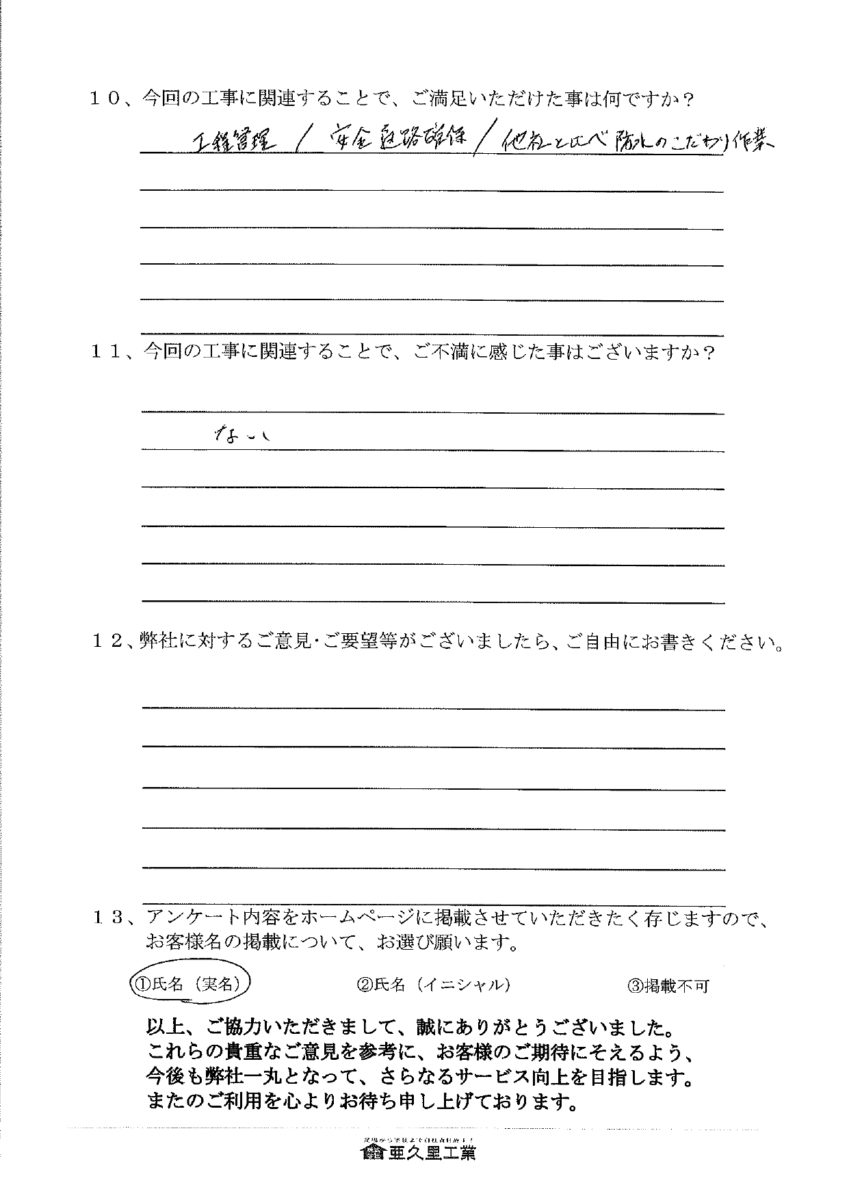 10、今回の工事に関連することで、ご満足いただけた事は何ですか?
工程管理 / 安全通路確保 / 他社と比べ防水のこだわり作業
11、今回の工事に関連することで、ご不満に感じた事はございますか?
ない
12、弊社に対するご意見・ご要望等がございましたら、ご自由にお書きください。
13、アンケート内容をホームページに掲載させていただきたく存じますので、
お客様名の掲載について、お選び願います。
①氏名(実名) ②氏名(イニシャル) ③掲載不可
以上、ご協力いただきまして、誠にありがとうございました。
これらの貴重なご意見を参考に、お客様のご期待にそえるよう、
今後も弊社一丸となって、さらなるサービス向上を目指します。
またのご利用を心よりお待ち申し上げております。
亜久里工業